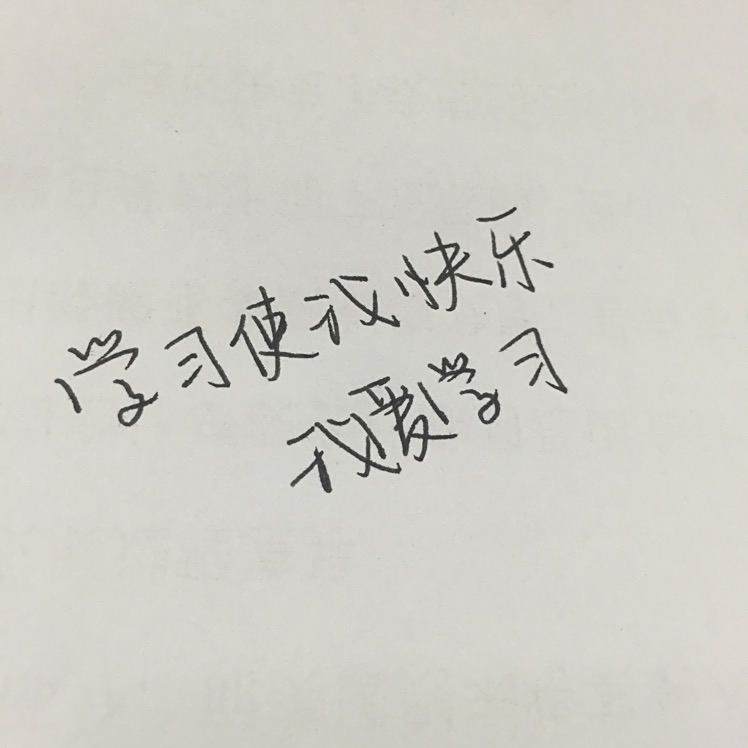 学习使我快乐
我爱学习